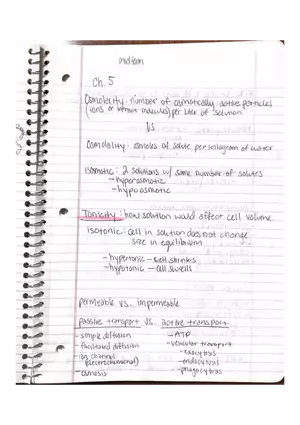 midterm
Ch. 5
Osmolarity: number of osmotically active particles
(ions or intact molecules) per liter of solution
vs.
Osmolality: osmoles of solute per kilogram of water
Isosmotic: 2 solutions w/ same number of solutes
- hyperosmotic
- hypoosmotic
Tonicity: how solution would affect cell volume
isotonic: cell in solution does not change
size in equilibrium
- hypertonic - cell shrinks
- hypotonic - cell swells
permeable vs. impermeable
passive transport vs. active transport
- simple diffusion - ATP
- facilitated diffusion - vesicular transport
- ion channel - exocytosis
(electrochemical) - endocytosis
- osmosis - phagocytosis